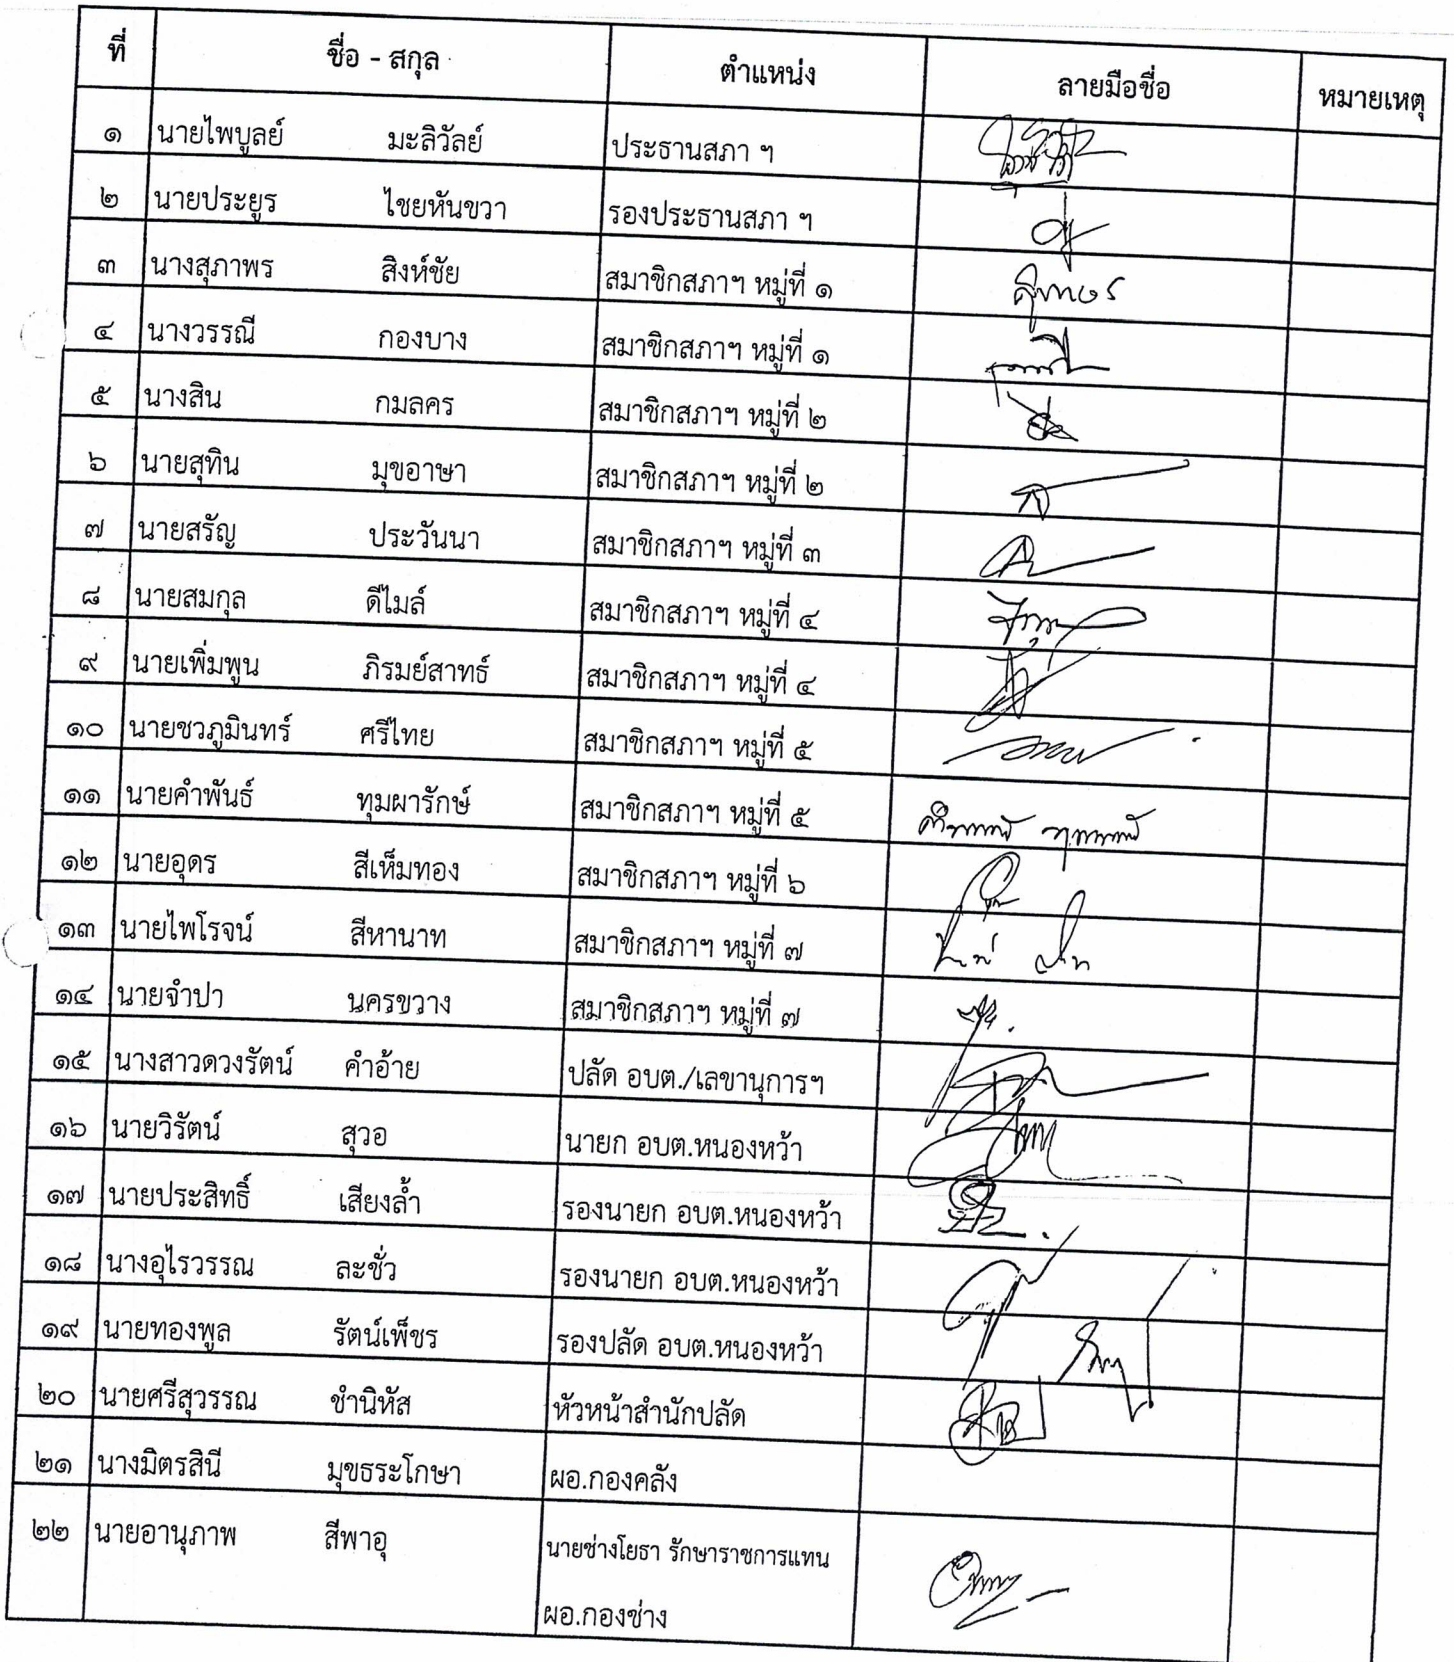 ที่ ชื่อ - สกุล ตำแหน่ง ลายมือชื่อ หมายเหตุ
๑ นายไพบูลย์ มะลิวัลย์ ประธานสภา ฯ
๒ นายประยูร ไชยหันขวา รองประธานสภา ฯ
๓ นางสุภาพร สิงห์ชัย สมาชิกสภาฯ หมู่ที่ ๑
๔ นางวรรณี กองบาง สมาชิกสภาฯ หมู่ที่ ๑
๕ นางสิน กมลคร สมาชิกสภาฯ หมู่ที่ ๒
๖ นายสุทิน มุขอาษา สมาชิกสภาฯ หมู่ที่ ๒
๗ นายสรัญ ประวันนา สมาชิกสภาฯ หมู่ที่ ๓
๘ นายสมกุล ดีไมล์ สมาชิกสภาฯ หมู่ที่ ๔
๙ นายเพิ่มพูน ภิรมย์สาทธ์ สมาชิกสภาฯ หมู่ที่ ๔
๑๐ นายชวภูมินทร์ ศรีไทย สมาชิกสภาฯ หมู่ที่ ๕
๑๑ นายคำพันธ์ ทุมผารักษ์ สมาชิกสภาฯ หมู่ที่ ๕
๑๒ นายอุดร สีเห็มทอง สมาชิกสภาฯ หมู่ที่ ๖
๑๓ นายไพโรจน์ สีหานาท สมาชิกสภาฯ หมู่ที่ ๗
๑๔ นายจำปา นครขวาง สมาชิกสภาฯ หมู่ที่ ๗
๑๕ นางสาวดวงรัตน์ คำอ้าย ปลัด อบต./เลขานุการฯ
๑๖ นายวิรัตน์ สุวอ นายก อบต.หนองหว้า
๑๗ นายประสิทธิ์ เสียงล้ำ รองนายก อบต.หนองหว้า
๑๘ นางอุไรวรรณ ละชั่ว รองนายก อบต.หนองหว้า
๑๙ นายทองพูล รัตน์เพ็ชร รองปลัด อบต.หนองหว้า
๒๐ นายศรีสุวรรณ ชำนิหัส หัวหน้าสำนักปลัด
๒๑ นางมิตรสินี มุขธระโกษา ผอ.กองคลัง
๒๒ นายอานุภาพ สีพาอุ นายช่างโยธา รักษาราชการแทน
ผอ.กองช่าง